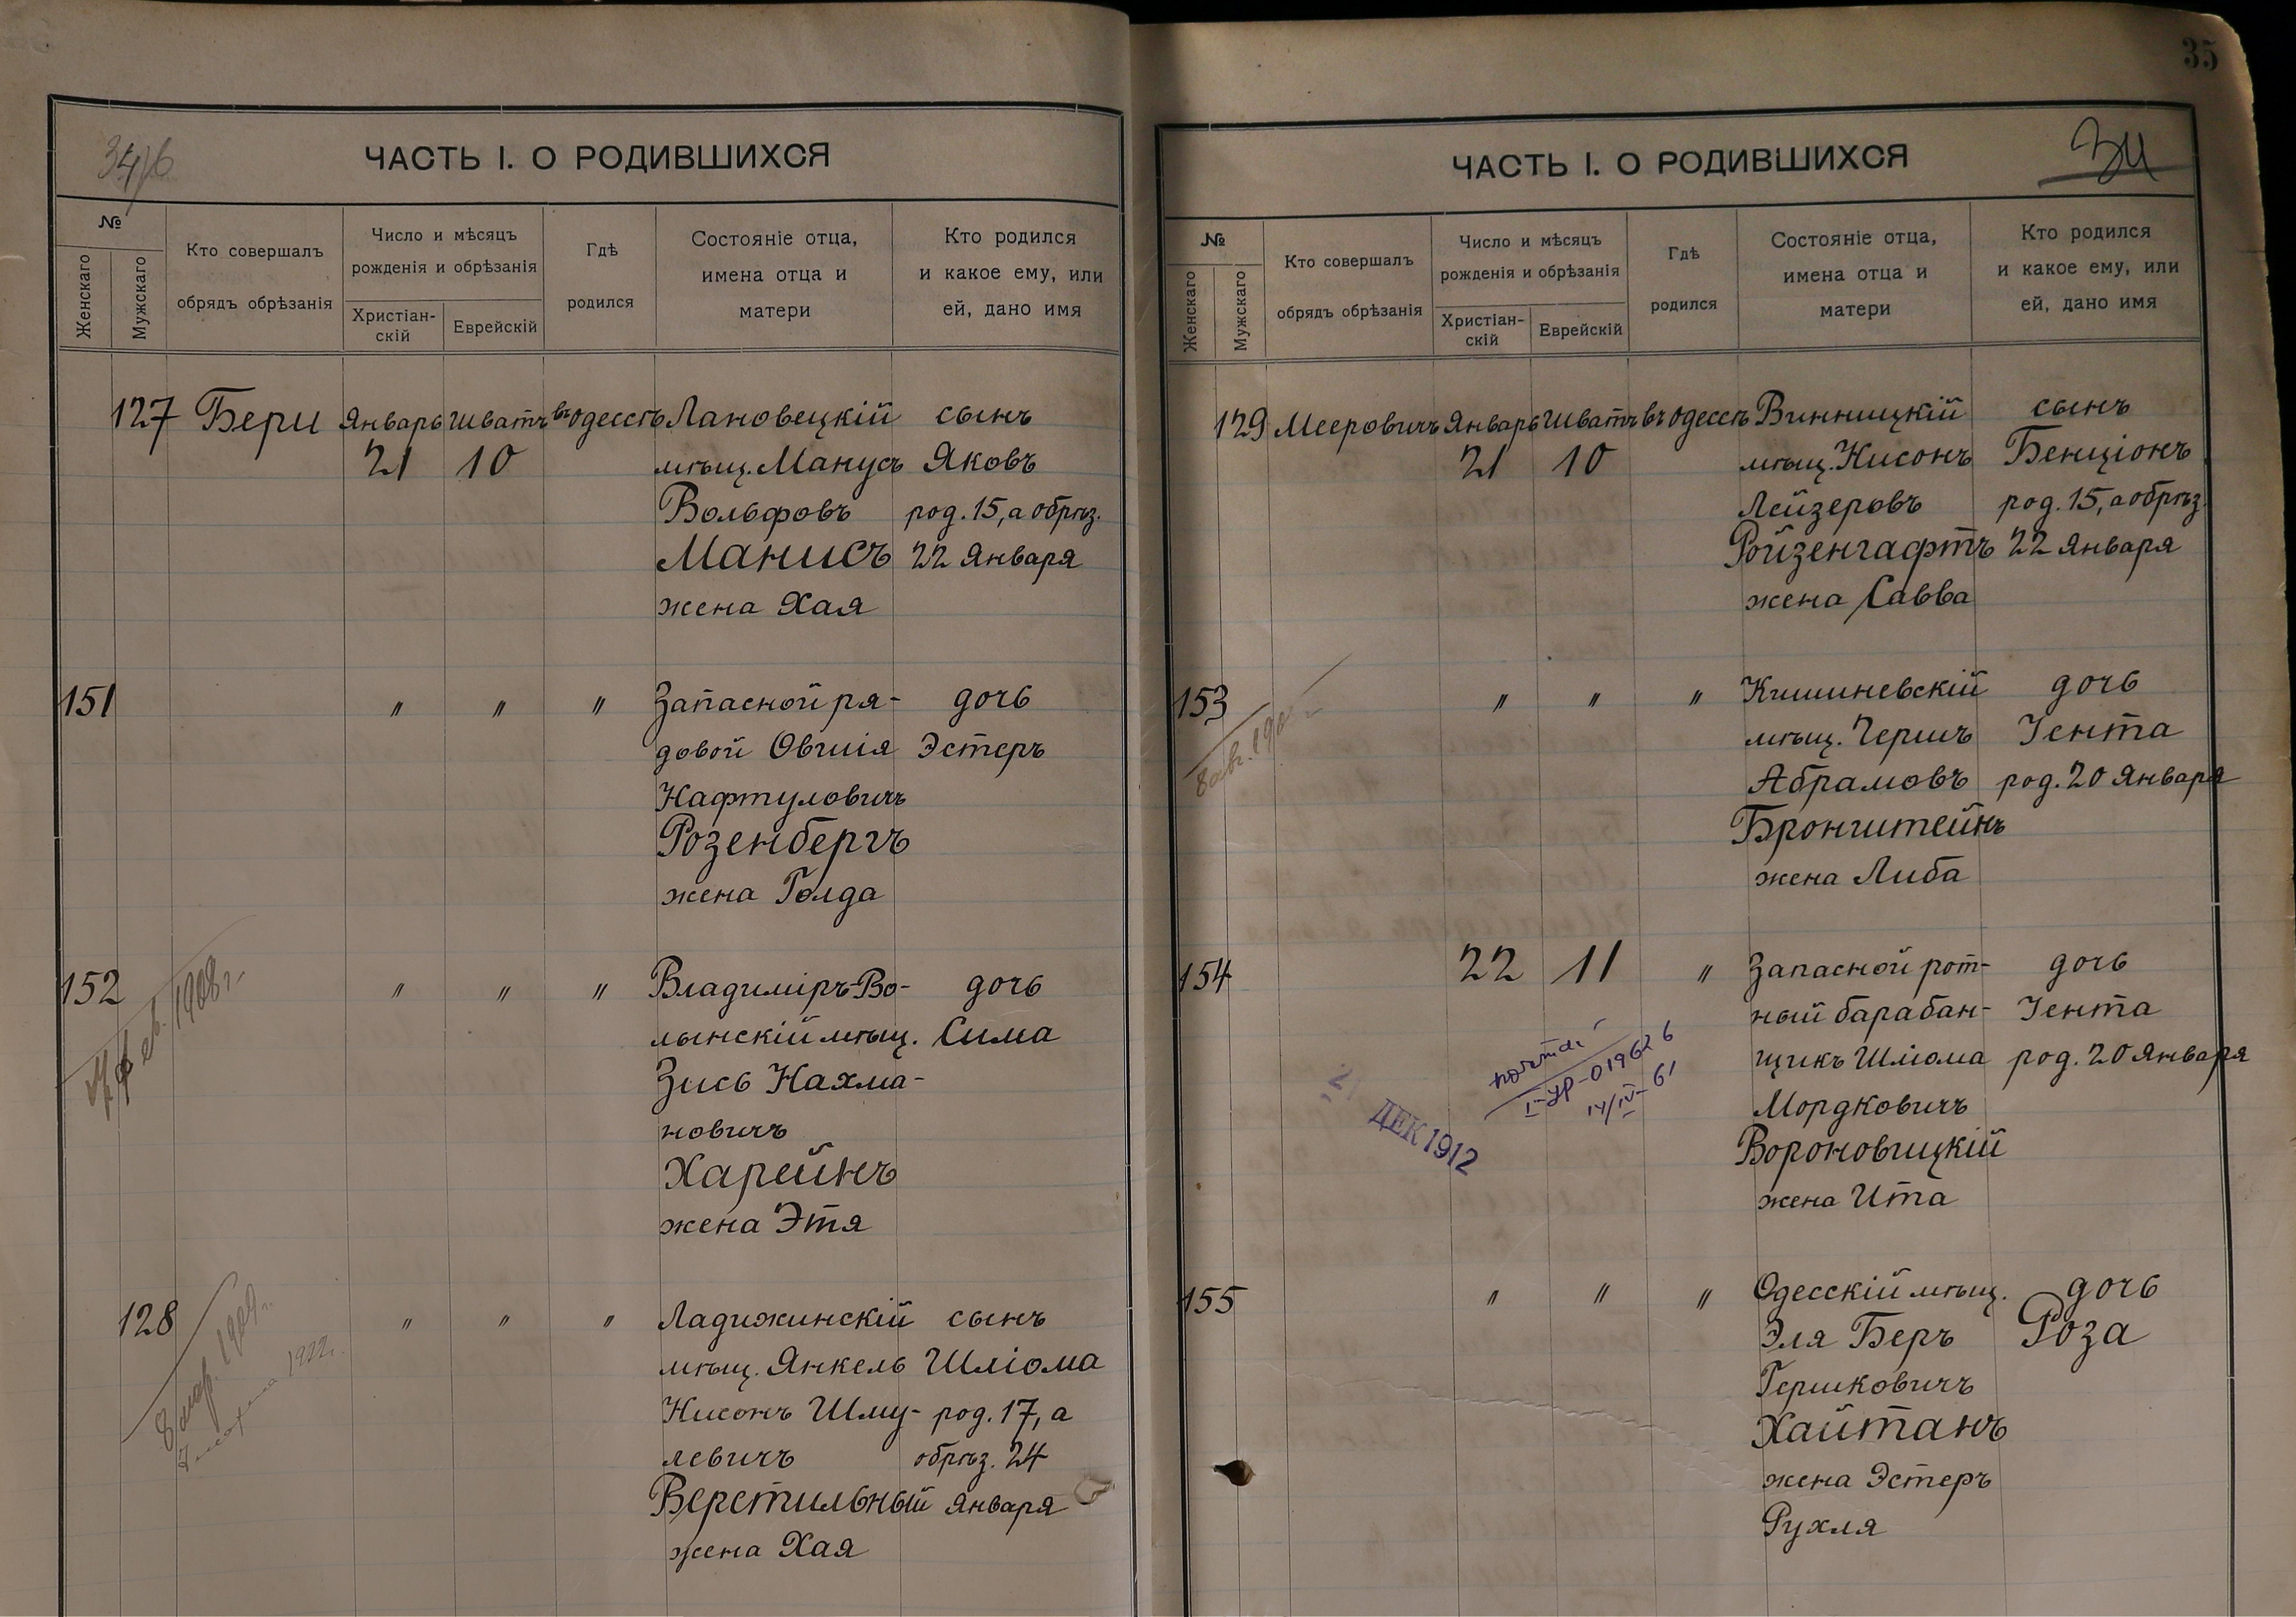 35
ЧАСТЬ I. О РОДИВШИХСЯ
№
Женскаго
Мужскаго
Кто совершалъ
обрядъ обрѣзанія
Число и мѣсяцъ
рожденія и обрѣзанія
Христіан-
скій
Еврейскій
Гдѣ
родился
Состояніе отца,
имена отца и
матери
Кто родился
и какое ему, или
ей, дано имя
127 Бери Январь Шватъ въ Одессѣ Лановецкій сынъ
21 10 мѣщ. Манусъ Яковъ
Вольфовъ род. 15, а обрѣз.
Манисъ 22 Января
жена Хая
151 " " " Запасной ря- дочь
довой Овшія Эстеръ
Нафтуловичъ
Розенбергъ
жена Голда
152 " " " Владиміръ-Во- дочь
лынскій мѣщ. Сима
Зись Нахма-
новичъ
Харейнъ
жена Этя
128 " " " Ладижинскій сынъ
мѣщ. Янкель Шліома
Нисонъ Шму- род. 17, а
левичъ обрѣз. 24
Верстильный Января
жена Хая
ЧАСТЬ I. О РОДИВШИХСЯ
№
Женскаго
Мужскаго
Кто совершалъ
обрядъ обрѣзанія
Число и мѣсяцъ
рожденія и обрѣзанія
Христіан-
скій
Еврейскій
Гдѣ
родился
Состояніе отца,
имена отца и
матери
Кто родился
и какое ему, или
ей, дано имя
129 Мееровичъ Январь Шватъ въ Одессѣ Винницкій сынъ
21 10 мѣщ. Нисонъ Бенціонъ
Лейзеровъ род. 15, а обрѣз.
Ройзенгафтъ 22 Января
жена Савва
153 " " " Кишиневскій дочь
мѣщ. Гершъ Іента
Абрамовъ род. 20 Января
Бронштейнъ
жена Либа
154 22 11 " Запасной рот- дочь
ный барабан- Іента
щикъ Шліома род. 20 Января
Мордковичъ
Вороновицкій
жена Ита
ДЕК 1912
155 " " " Одесскій мѣщ. дочь
Эля Беръ Роза
Гершковичъ
Хайтанъ
жена Эстеръ
Рухля